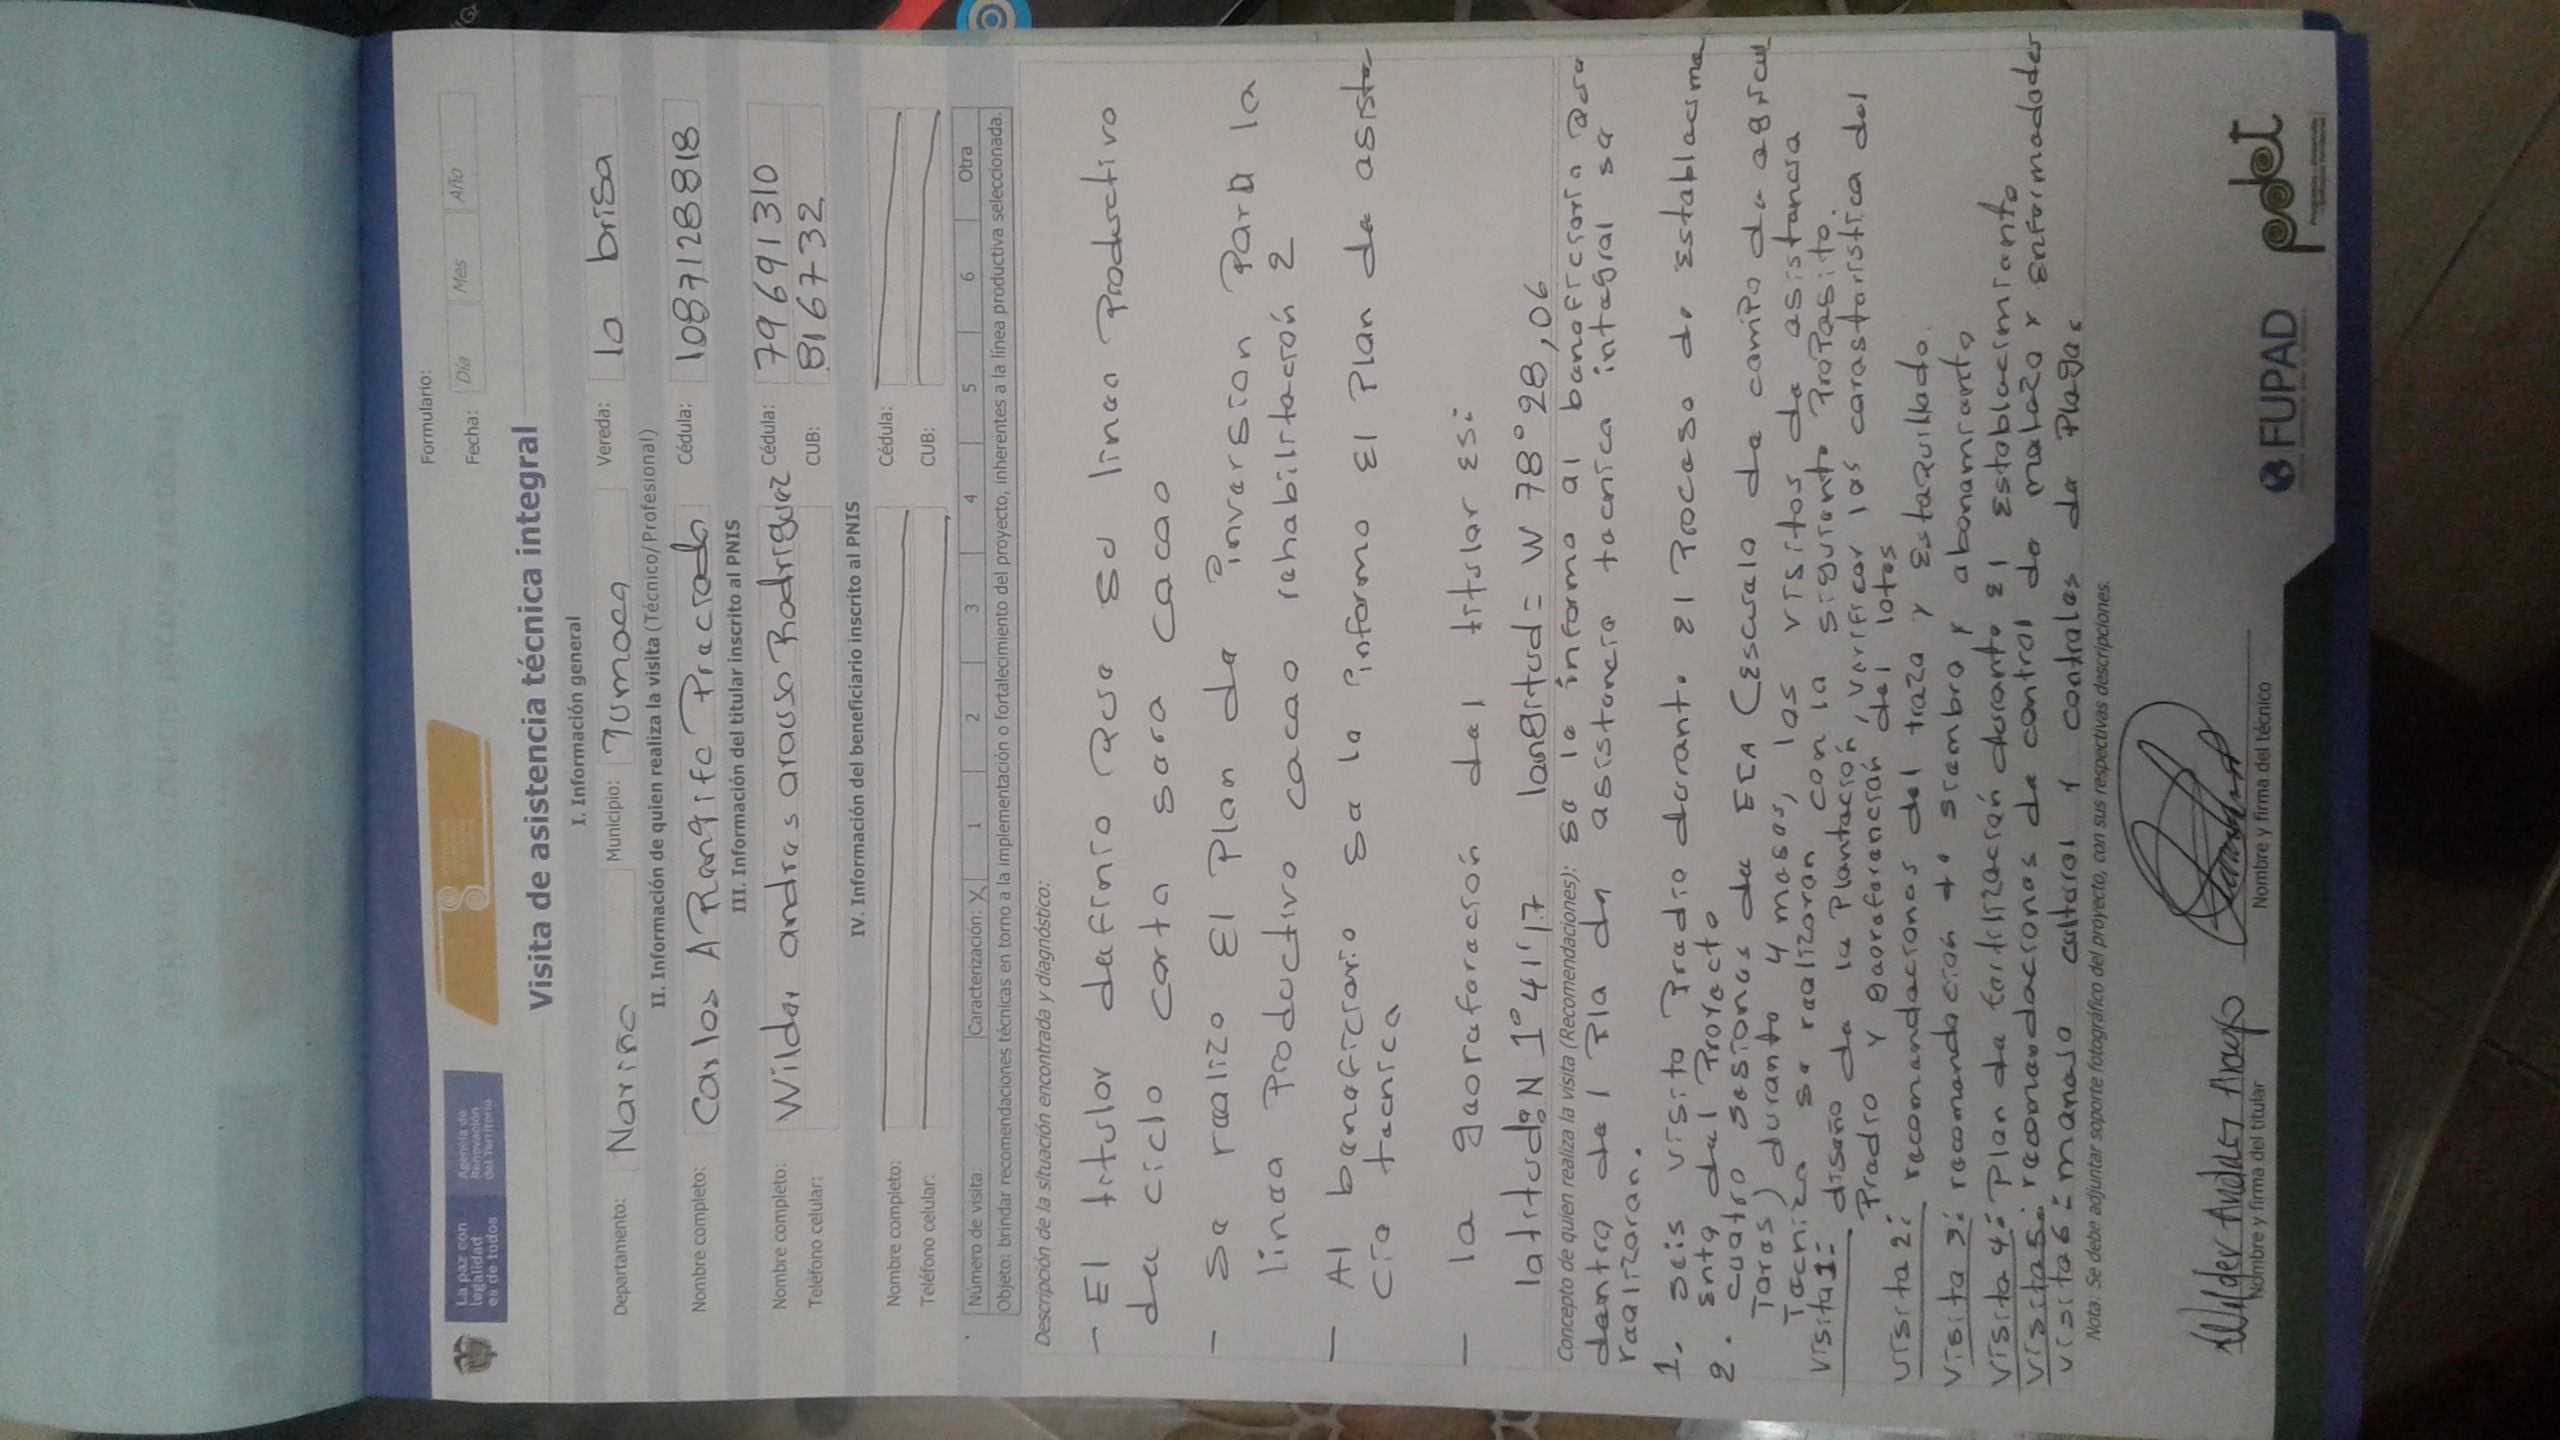 La paz con
legalidad
es de todos
Agencia de
Renovación
del Territorio
Formulario:
Fecha: Día Mes Año
Visita de asistencia técnica integral
I. Información general
Departamento: Nariño Municipio: Tumaco Vereda: la brisa
II. Información de quien realiza la visita (Técnico/Profesional)
Nombre completo: Carlos A Rangifo Preciado Cédula: 1087128818
III. Información del titular inscrito al PNIS
Nombre completo: Wilder andres arauso Rodriguez Cédula: 79691310
Teléfono celular: CUB: 8167732
IV. Información del beneficiario inscrito al PNIS
Nombre completo: Cédula:
Teléfono celular: CUB:
Número de visita: Caracterización: X 1 2 3 4 5 6 Otra
Objeto: brindar recomendaciones técnicas en torno a la implementación o fortalecimiento del proyecto, inherentes a la línea productiva seleccionada.
Descripción de la situación encontrada y diagnóstico:
- El titular definio que su linea Productivo
de ciclo corto sera cacao
- se realizo El Plan de inversion Para la
linea Productivo cacao rehabilitación 2
- Al beneficiario se le informo El Plan de asiste
cia tecnica
- la georeferación del titular es:
latitud: N 1° 41' 1.7 longitud = W 78° 28, 06
Concepto de quien realiza la visita (Recomendaciones): se le informo al beneficiario que
dentro de l Pla de asistencia tecnica integral se
realizaran.
1. seis visita Predio durante el Proceso de establecime
ento del Proyecto
2. cuatro sesiones de ECA (escuela de campo de agricul
Tores) durante 4 meses, las visitas de asistencia
Tecnica se realizaran con la siguiente Proposito.
Visita 1= diseño de la Plantación, verificar las caracteristica del
Predio y georeferención del lotes
visita 2: recomendaciones del trazo y estaquillado.
visita 3: recomendación de siembra y abonamiento
visita 4: Plan de fertilización durante el establecimiento
visita 5: recomendaciones de control de maleza y enfermedades
visita 6: manejo cultural y controles de Plagas
Nota: Se debe adjuntar soporte fotográfico del proyecto, con sus respectivas descripciones.
Wilder Andres Araujo
Nombre y firma del titular Nombre y firma del técnico
FUPAD
pdet